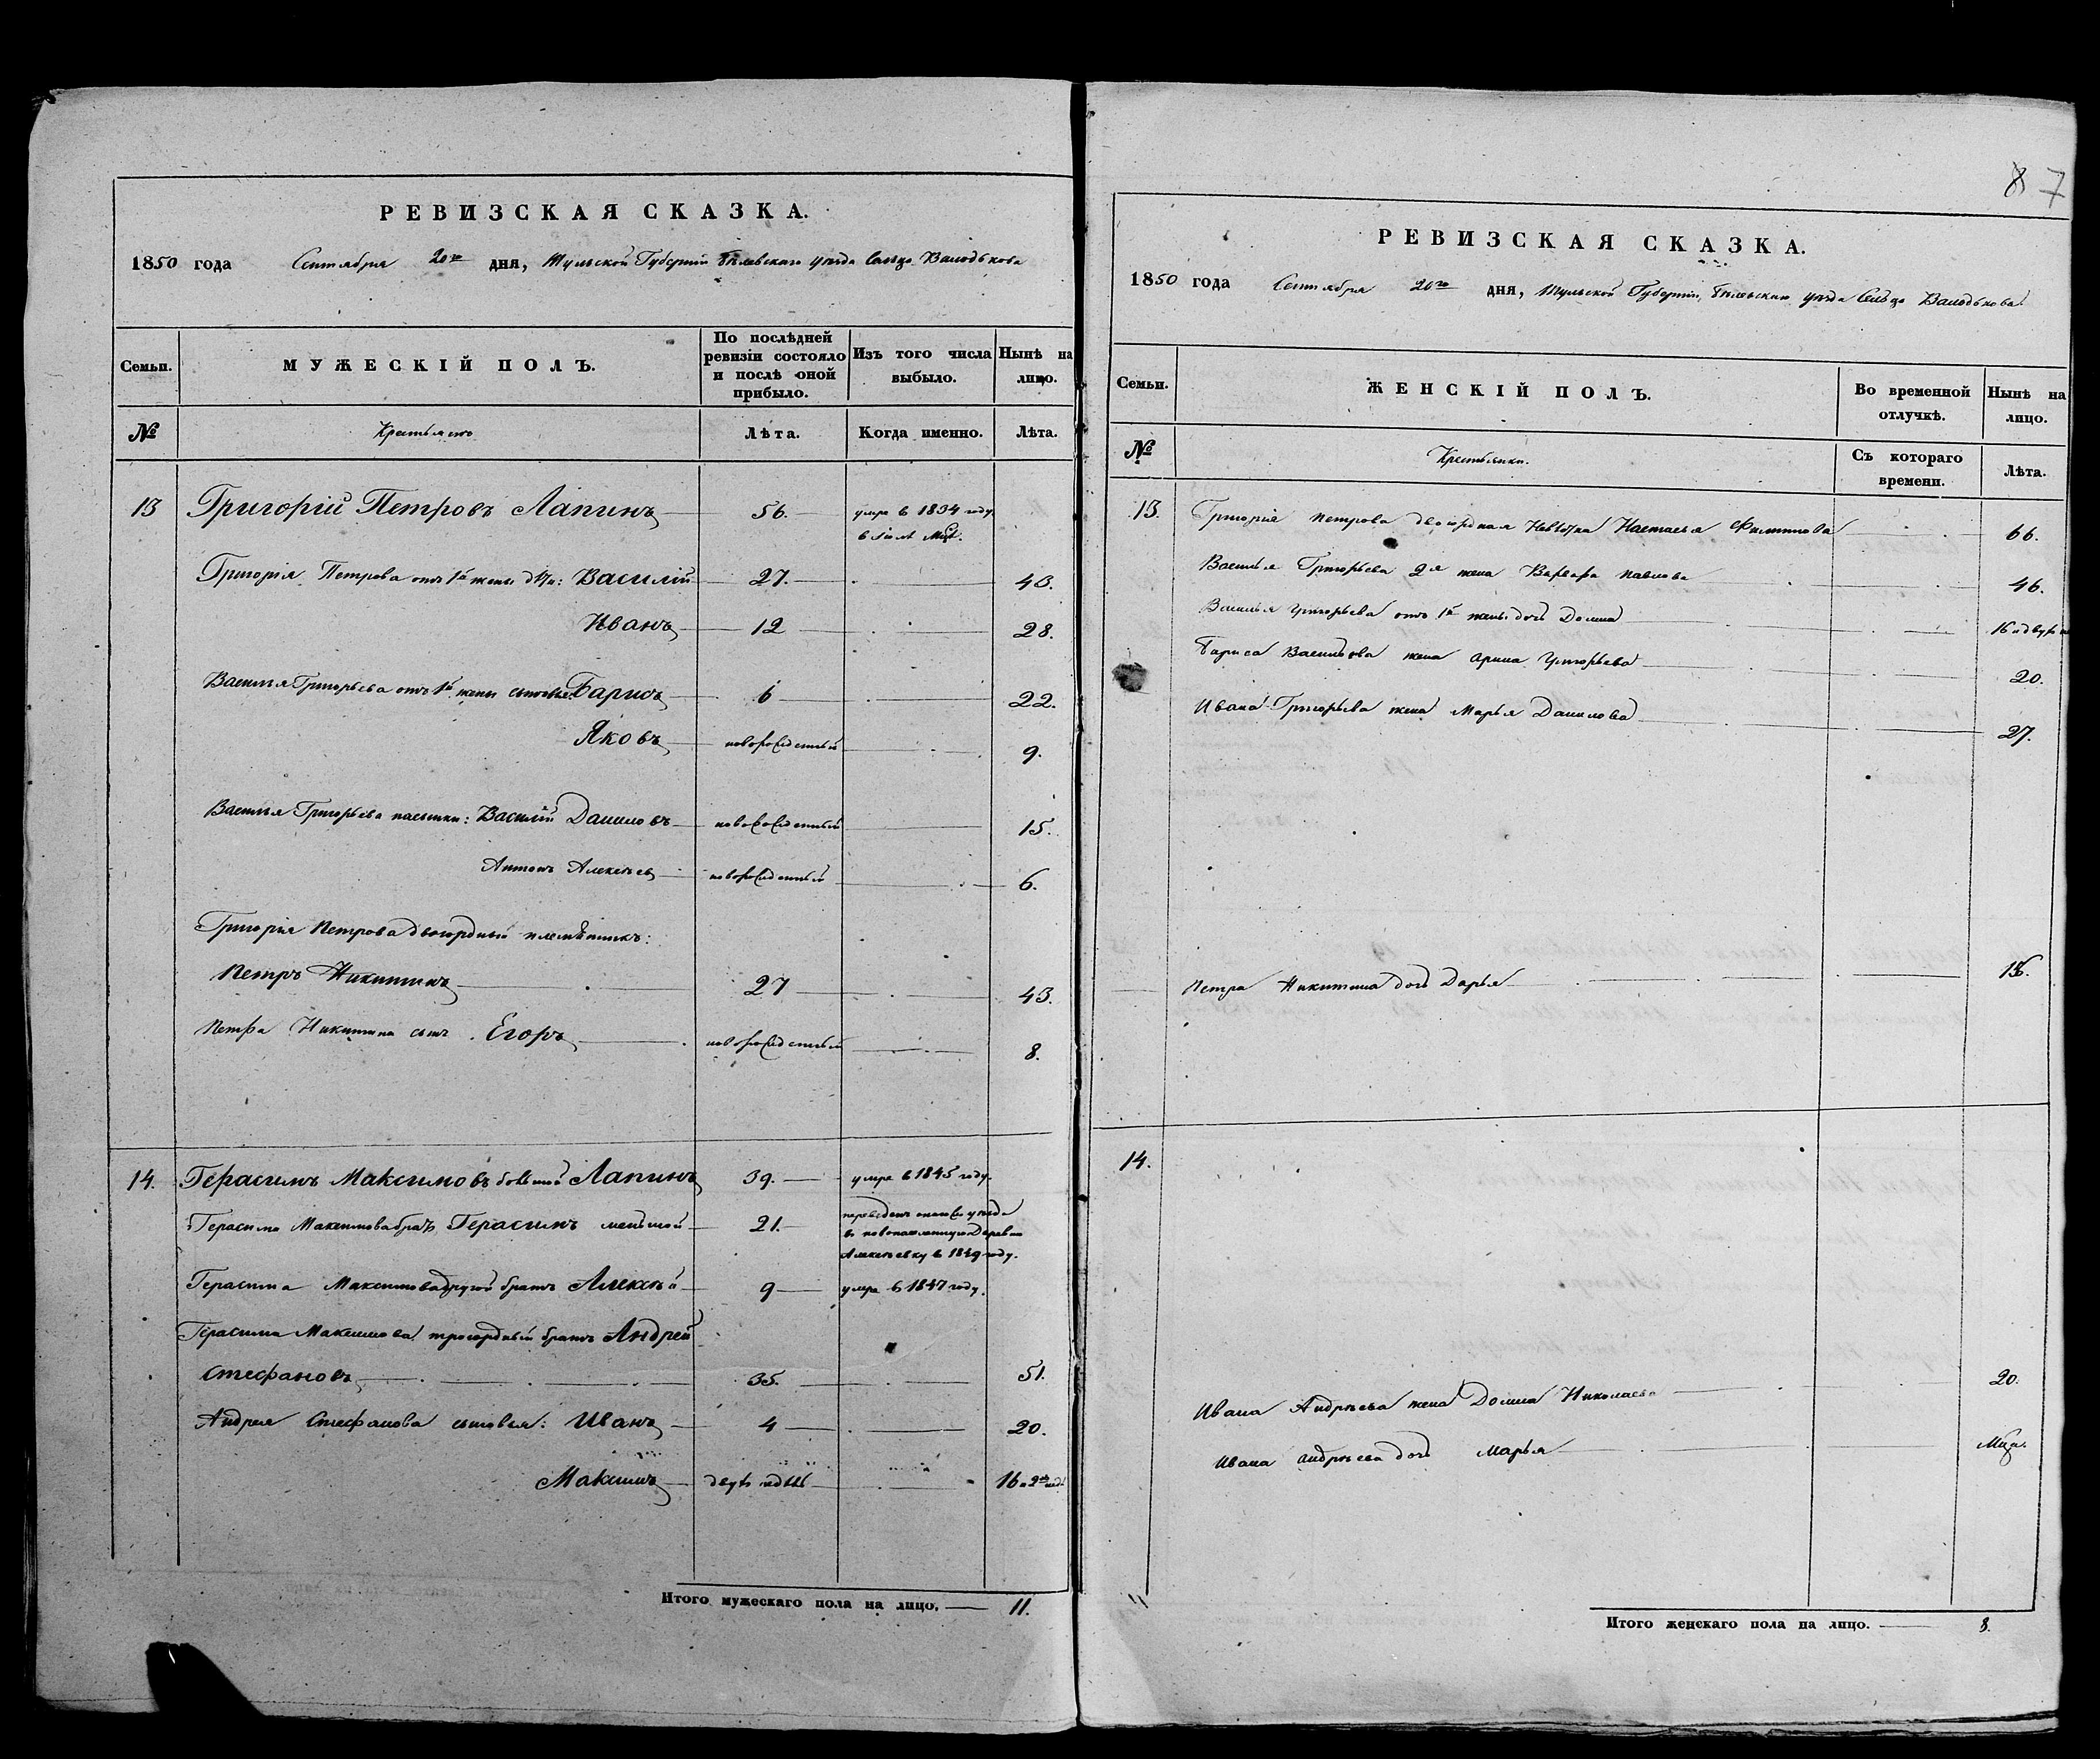 РЕВИЗСКАЯ СКАЗКА.
1850 года Сентября 20го дня, Тульской Губернии Бѣлевскаго уѣзда Сельцо Валодькова
Семьи.
МУЖЕСКІЙ ПОЛЪ.
По послѣдней ревизіи состояло и послѣ оной прибыло.
Изъ того числа выбыло.
Нынѣ на лицо.
№
Крестьянъ
Лѣта.
Когда именно.
Лѣта.
13 Григорій Петровъ Лапинъ 56. умре в 1834 году
в Іюлѣ Мцѣ.
Григорія Петрова отъ 1й жены дѣти: Василій 27. 43.
Иванъ 12 28.
Василья Григорьева отъ 1й жены сыновья: Барисъ 6 22.
Яковъ новорожденный 9.
Василья Григорьева пасынки: Василій Даниловъ новорожденный 15.
Антонъ Алексѣевъ новорожденный 6.
Григорія Петрова двоюрдный племѣникъ:
Петръ Никитинъ 27 43.
Петра Никитина сынъ Егоръ новорожденный 8.
14. Герасимъ Максимовъ большой Лапинъ 39. умре в 1845 году.
Герасима Максимова братъ Герасимъ меньшой 21. переведенъ уѣзда
в Деревню
Алексѣевку в 1849 году.
Герасима Максимова другой братъ Алексѣй 9 умре в 1847 году.
Герасима Максимова троюрдный братъ Андрей
Стефановъ 35. 51.
Андрея Стефанова сыновья: Иванъ 4 20.
Максимъ двухъ недѣль 16 и 2хъ нед.
Итого мужескаго пола на лицо. 11.
8 7
РЕВИЗСКАЯ СКАЗКА.
1850 года Сентября 20го дня, Тульской Губерніи, Бѣлевскаго уѣзда Сельцо Валодькова.
Семьи.
ЖЕНСКІЙ ПОЛЪ.
Во временной отлучкѣ.
Нынѣ на лицо.
№
Крестьянки.
Съ котораго времени.
Лѣта.
13. Григорія Петрова двоюрдная невѣстка Настасья Филипова 66.
Василья Григорьева 2я жена Варвара Павлова 46.
Василья Григорьева отъ 1й жены дочь Домна
Бариса Васильева жена Арина Григорьева 20.
Ивана Григорьева жена Марья Данилова 27.
Петра Никитина дочь Дарья
14.
Ивана Андрѣева жена Домна Николаева 20.
Ивана Андрѣева дочь Марья
Итого женскаго пола на лицо. 8.